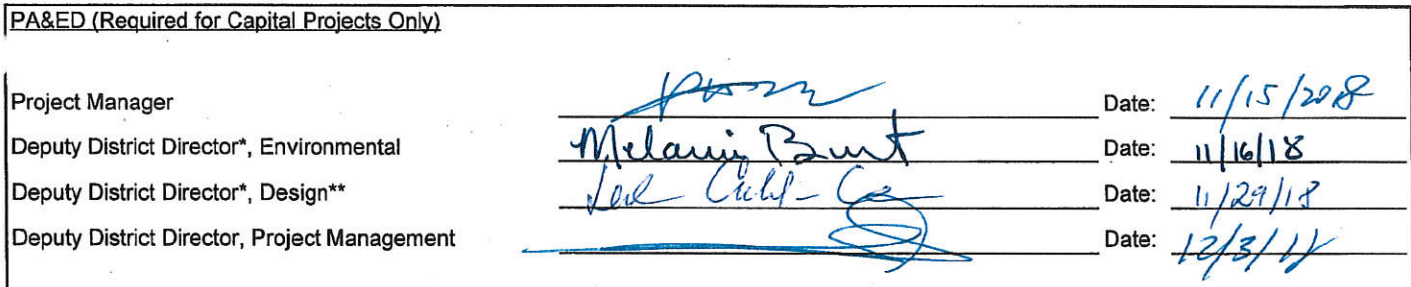 PA&ED (Required for Capital Projects Only)
Project Manager Date: 11/15/2018
Deputy District Director*, Environmental Melanie Brent Date: 11/16/18
Deputy District Director*, Design** Date: 11/29/18
Deputy District Director, Project Management Date: 12/3/18